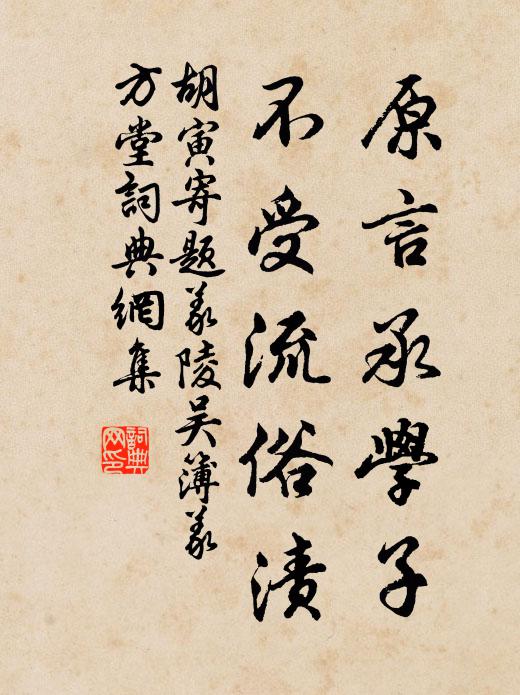 原言承學子
不受流俗漬
胡寅寄題義陵吴簿義
方堂詞典網集
詞典
网印